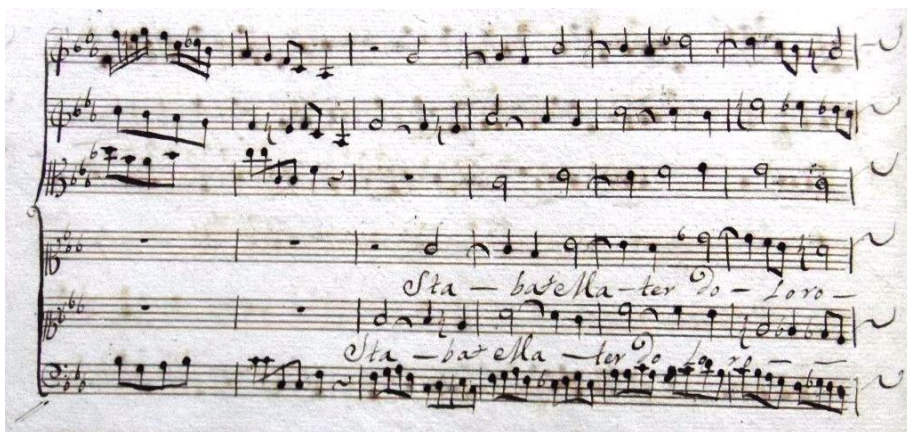 Sta - bat Ma - ter Do - loro -
Sta - bat Ma - ter Do loro - -